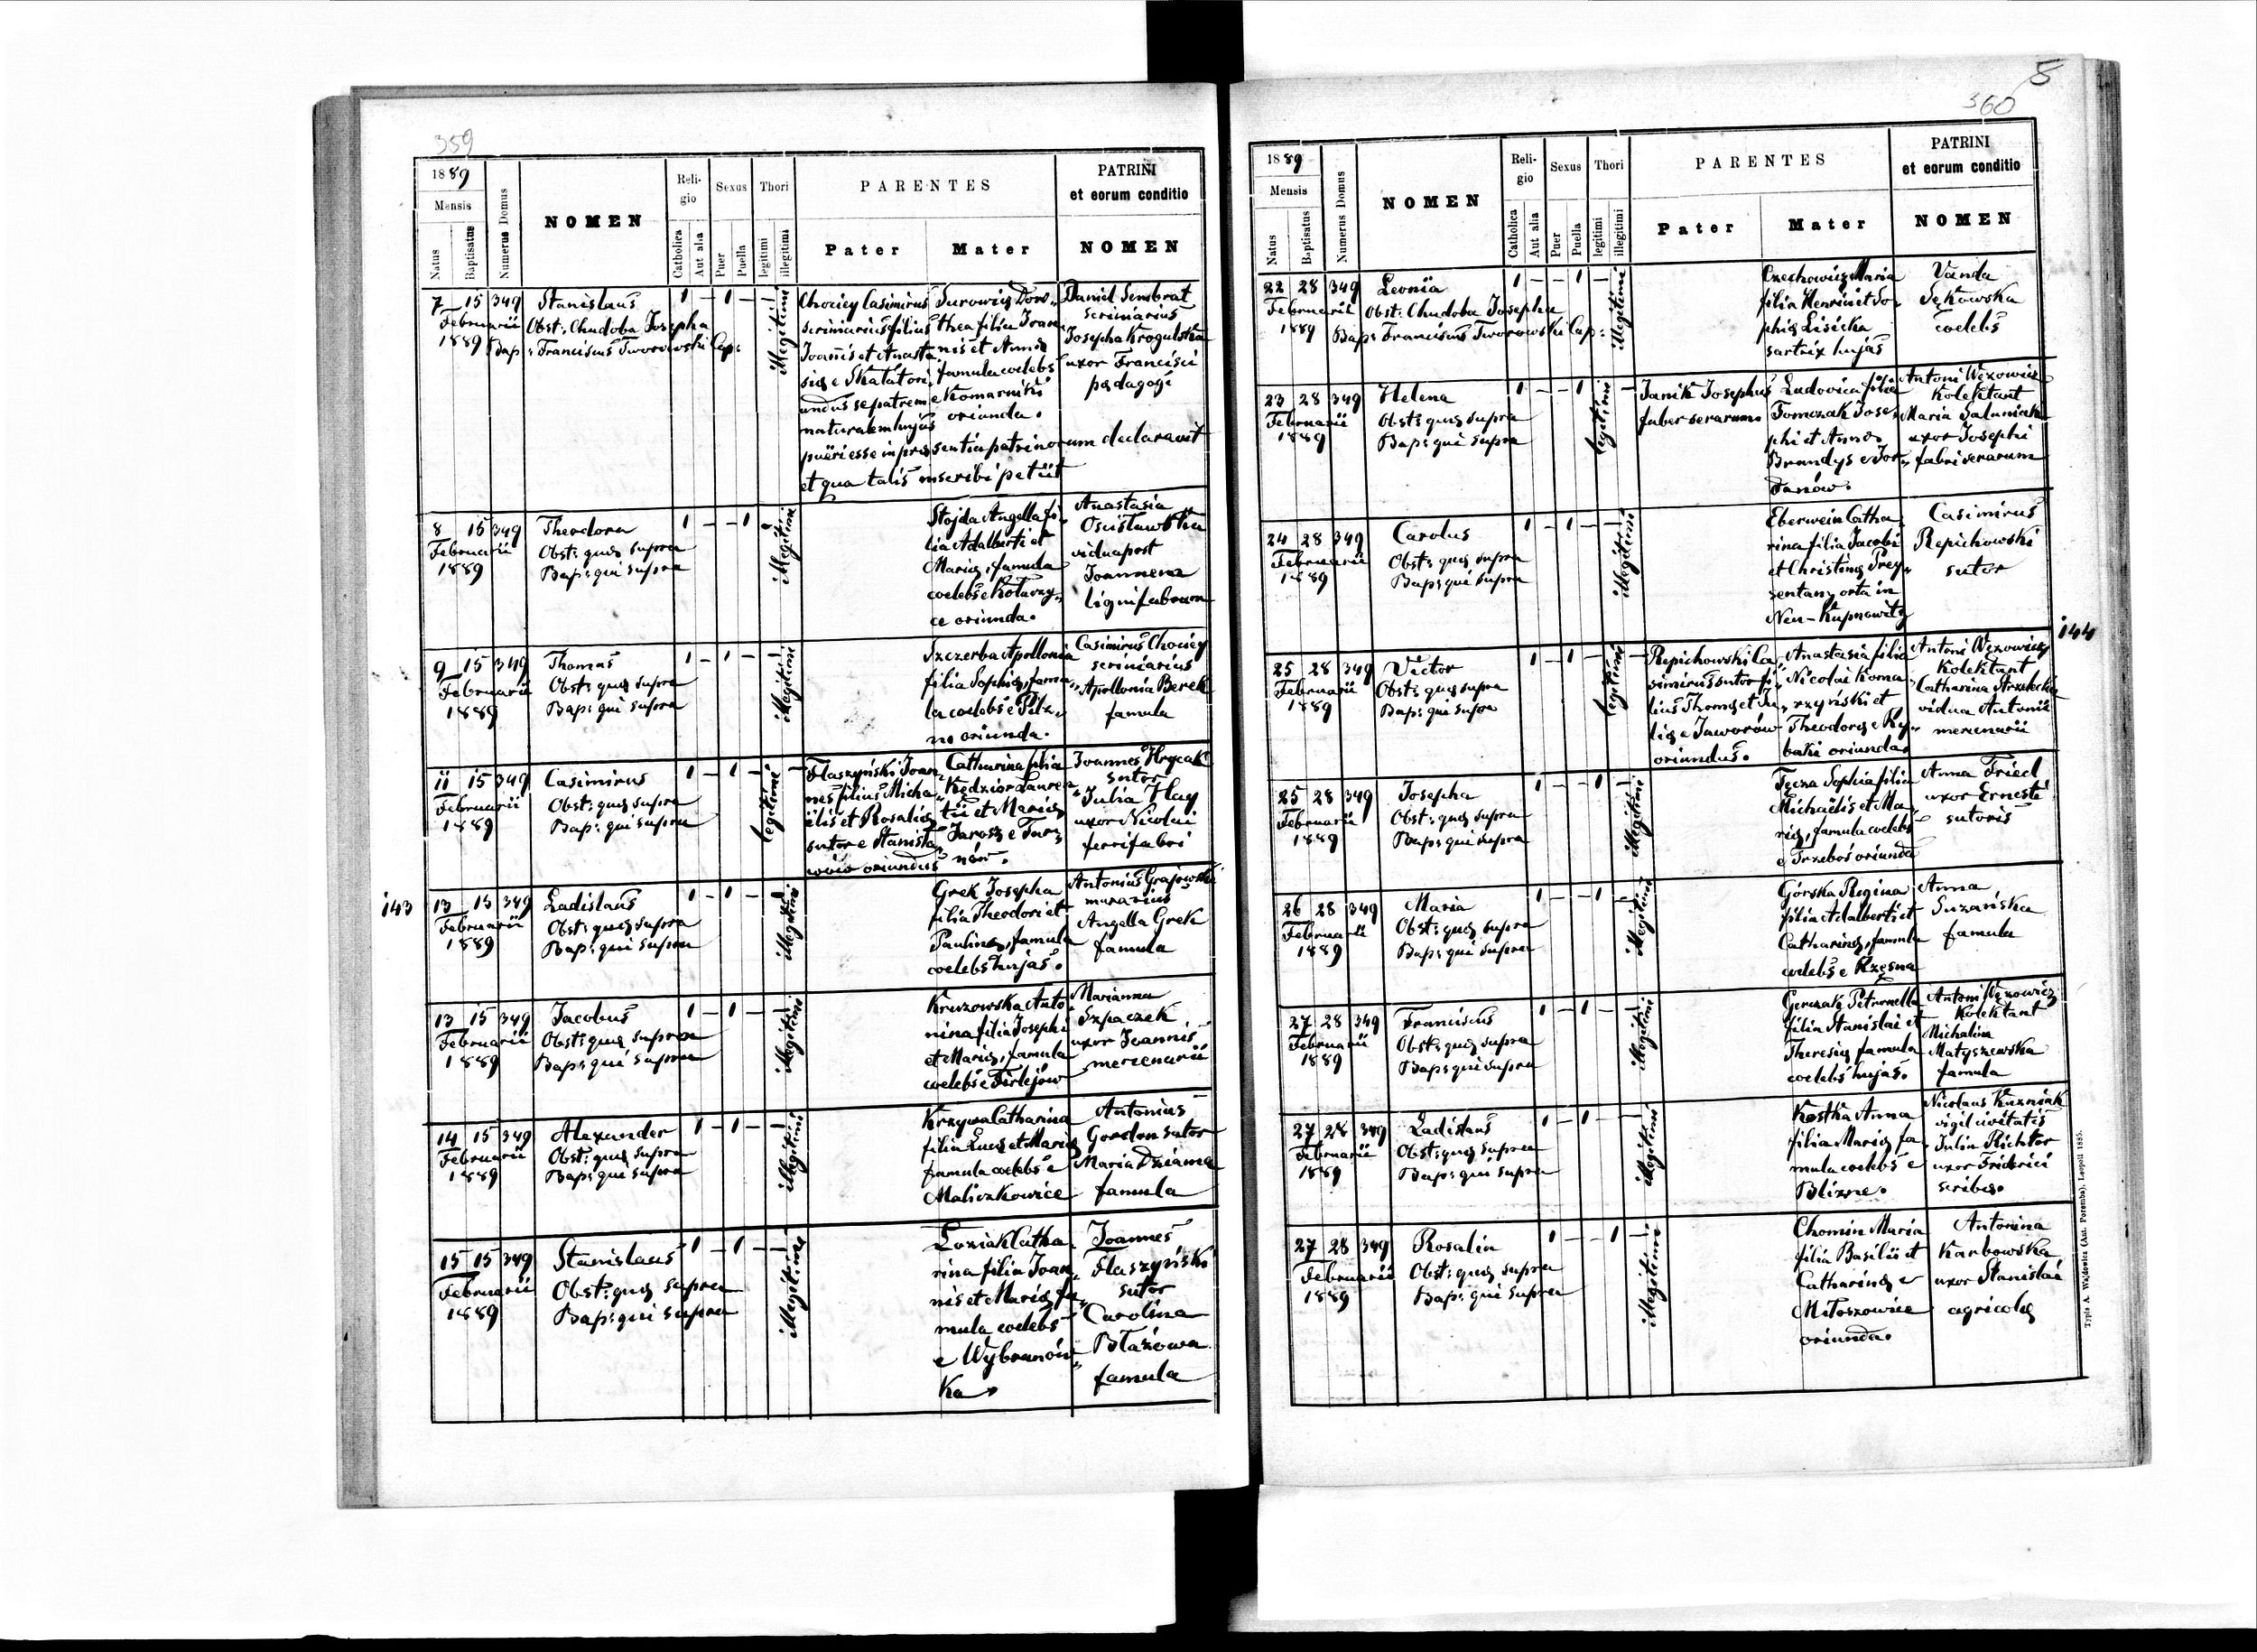 359
1889
Mensis
Natus
Baptisatus
Numerus Domus
NOMEN
Religio
Catholica
Aut alia
Sexus
Puer
Puella
Thori
legitimi
illegitimi
PARENTES
Pater
Mater
PATRINI
et eorum conditio
NOMEN
7 15 349
Februarii
1889
Stanislaus
Obst: Chudoba Josepha
Bap: Franciscus Tworowski Cap:
1 – 1 – – 1
illegitimi
Chociey Casimirus
scriniarius filius
Joannis et Anasta
siæ e Skałatori
undus se patrem
naturalem hujus
pueri esse in præsentia patrinorum declaravit
et qua talis inscribi petiit
Surowicz Doro„
thea filia Joan
nis et Annæ
famula coelebs
e Komarniki
oriunda.
Daniel Sembrat
scriniarius
Josepha Krogulska
uxor Francisci
pædagogi
8 15 349
Februarii
1889
Theodora
Obst: quæ supra
Bap: qui supra
1 – – 1 – 1
illegitimi
Stojda Angella fi
lia Adalberti et
Mariæ, famula
coelebs e Kołaczy„
ce oriunda.
Anastasia
Ościsławska
vidua post
Joannem
lignifabrum
9 15 349
Februarii
1889
Thomas
Obst: quæ supra
Bap: qui supra
1 – 1 – – 1
illegitimi
Szczerba Apollonia
filia Sophiæ, famu„
la coelebs e Pilz„
no oriunda.
Casimirus Chociey
scriniarius
Apollonia Berek
famula
11 15 349
Februarii
1889
Casimirus
Obst: quæ supra
Bap: qui supra
1 – 1 – 1 –
legitimi
Flaszyński Joan„
nes filius Micha„
ëlis et Rosaliæ
sutor e Stanisła„
wów oriundus
Catharina filia
Kędzior Lauren„
tii et Mariæ
Jarosz e Tar„
nów.
Joannes Hrycak
sutor
Julia Hay
uxor Nicolai
ferrifabri
143
13 15 349
Februarii
1889
Ladislaus
Obst: quæ supra
Bap: qui supra
1 – 1 – – 1
illegitimi
Grek Josepha
filia Theodori et
Paulinæ, famula
coelebs hujas.
Antonius Grajowski
murarius
Angella Grek
famula
13 15 349
Februarii
1889
Jacobus
Obst: quæ supra
Bap: qui supra
1 – 1 – – 1
illegitimi
Kruzowska Anto
nina filia Josephi
et Mariæ, famula
coelebs e Firlejów
Marianna
Szpaczek
uxor Joannis
mercenarii
14 15 349
Februarii
1889
Alexander
Obst: quæ supra
Bap: qui supra
1 – 1 – – 1
illegitimi
Krzywa Catharina
filia Lucæ et Mariæ
famula coelebs e
Maliczkowice
Antonius
Gordon sutor
Maria Dziama
famula
15 15 349
Februarii
1889
Stanislaus
Obst: quæ supra
Bap: qui supra
1 – 1 – – 1
illegitimi
Łoziak Catha
rina filia Joan„
nis et Mariæ fa„
mula coelebs
e Wybranów„
ka
Joannes
Flaszyński
sutor
Carolina
Błażowa
famula
5
360
1889
Mensis
Natus
Baptisatus
Numerus Domus
NOMEN
Religio
Catholica
Aut alia
Sexus
Puer
Puella
Thori
legitimi
illegitimi
PARENTES
Pater
Mater
PATRINI
et eorum conditio
NOMEN
22 28 349
Februarii
1889
Leonia
Obst: Chudoba Josepha
Bap: Franciscus Tworowski Cap:
1 – – 1 – 1
illegitimi
Czechowicz Maria
filia Henrici et So„
phiæ Lisicka
sartrix hujas
Vanda
Sękowska
coelebs
23 28 349
Februarii
1889
Helena
Obst: quæ supra
Bap: qui supra
1 – – 1 1 –
legitimi
Janik Josephus
faber serarum
Ludovica filia
Tomczak Jose„
phi et Annæ
Brandys e Jor„
danów.
Antoni Węzowicz
kolektant
Maria Salumiak
uxor Josephi
fabri serarum
24 28 349
Februarii
1889
Carolus
Obst: quæ supra
Bap: qui supra
1 – 1 – – 1
illegitimi
Eberwein Catha
rina filia Jacobi
et Christinæ Prey„
sentanz orta in
Neu-Kupnowitz
Casimirus
Repichowski
sutor
144
25 28 349
Februarii
1889
Victor
Obst: quæ supra
Bap: qui supra
1 – 1 – 1 –
legitimi
Repichowski Ca„
simirus sutor fi„
lius Thomæ et Ju„
liæ e Jaworów
oriundus.
Anastasia filia
Nicolai Koma„
rzyński et
Theodoræ e Ry„
baki oriunda.
Antoni Węzowicz
kolektant
Catharina Strzelecka
vidua Antonii
mercenarii
25 28 349
Februarii
1889
Josepha
Obst: quæ supra
Bap: qui supra
1 – – 1 – 1
illegitimi
Tęcza Sophia filia
Michaëlis et Ma„
riæ, famula coelebs
e Trzeboś oriunda
Anna Fried
uxor Ernesti
sutoris
26 28 349
Februarii
1889
Maria
Obst: quæ supra
Bap: qui supra
1 – – 1 – 1
illegitimi
Górska Regina
filia Adalberti et
Catharinæ, famula
coelebs e Rzęsna
Anna
Suzańska
famula
27 28 349
Februarii
1889
Franciscus
Obst: quæ supra
Bap: qui supra
1 – 1 – – 1
illegitimi
Gerczak Petronella
filia Stanislai et
Theresiæ famula
coelebs hujas.
Antoni Węzowicz
kolektant
Michalina
Matyszewska
famula
27 28 349
Februarii
1889
Ladislaus
Obst: quæ supra
Bap: qui supra
1 – 1 – – 1
illegitimi
Kostka Anna
filia Mariæ fa„
mula coelebs e
Blizne.
Nicolaus Kuzniak
vigil civitatis
Julia Richter
uxor Friderici
scribæ.
27 28 349
Februarii
1889
Rosalia
Obst: quæ supra
Bap: qui supra
1 – – 1 – 1
illegitimi
Chomin Maria
filia Basilii et
Catharinæ e
Miłoszowice
oriunda.
Antonina
Karbowska
uxor Stanislai
agricolæ
Typis A. Wajdowicz (Ant. Poremba), Leopoli 1885.